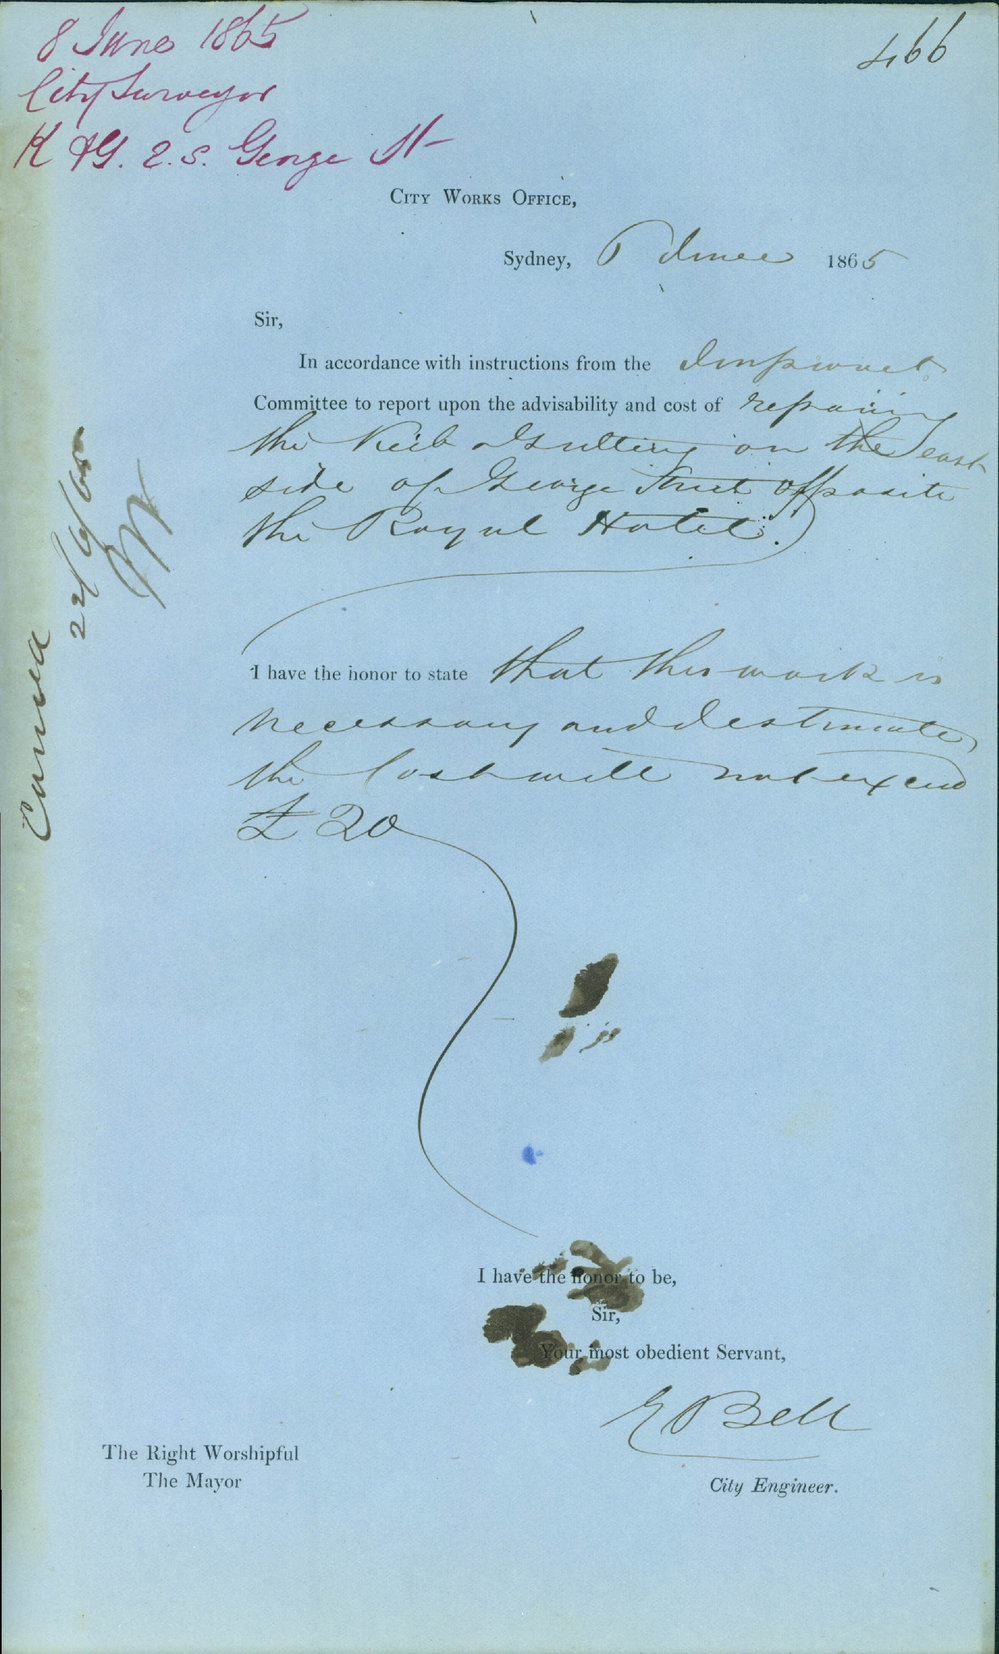 8 June 1865
466
City Surveyor
K & G. E.S. George St
CITY WORKS OFFICE,
Sydney, June 1865
Sir,
In accordance with instructions from the Improvmet.
Committee to report upon the advisability and cost of repairing
the Kerb & Guttering on the east
side of George Street opposite
the Royal Hotel.
I have the honor to state that this work is
necessary and I estimate
the cost will not exceed
£20
Carried
22/6/65
I have the honor to be,
Sir,
Your most obedient Servant,
E Bell
City Engineer.
The Right Worshipful
The Mayor